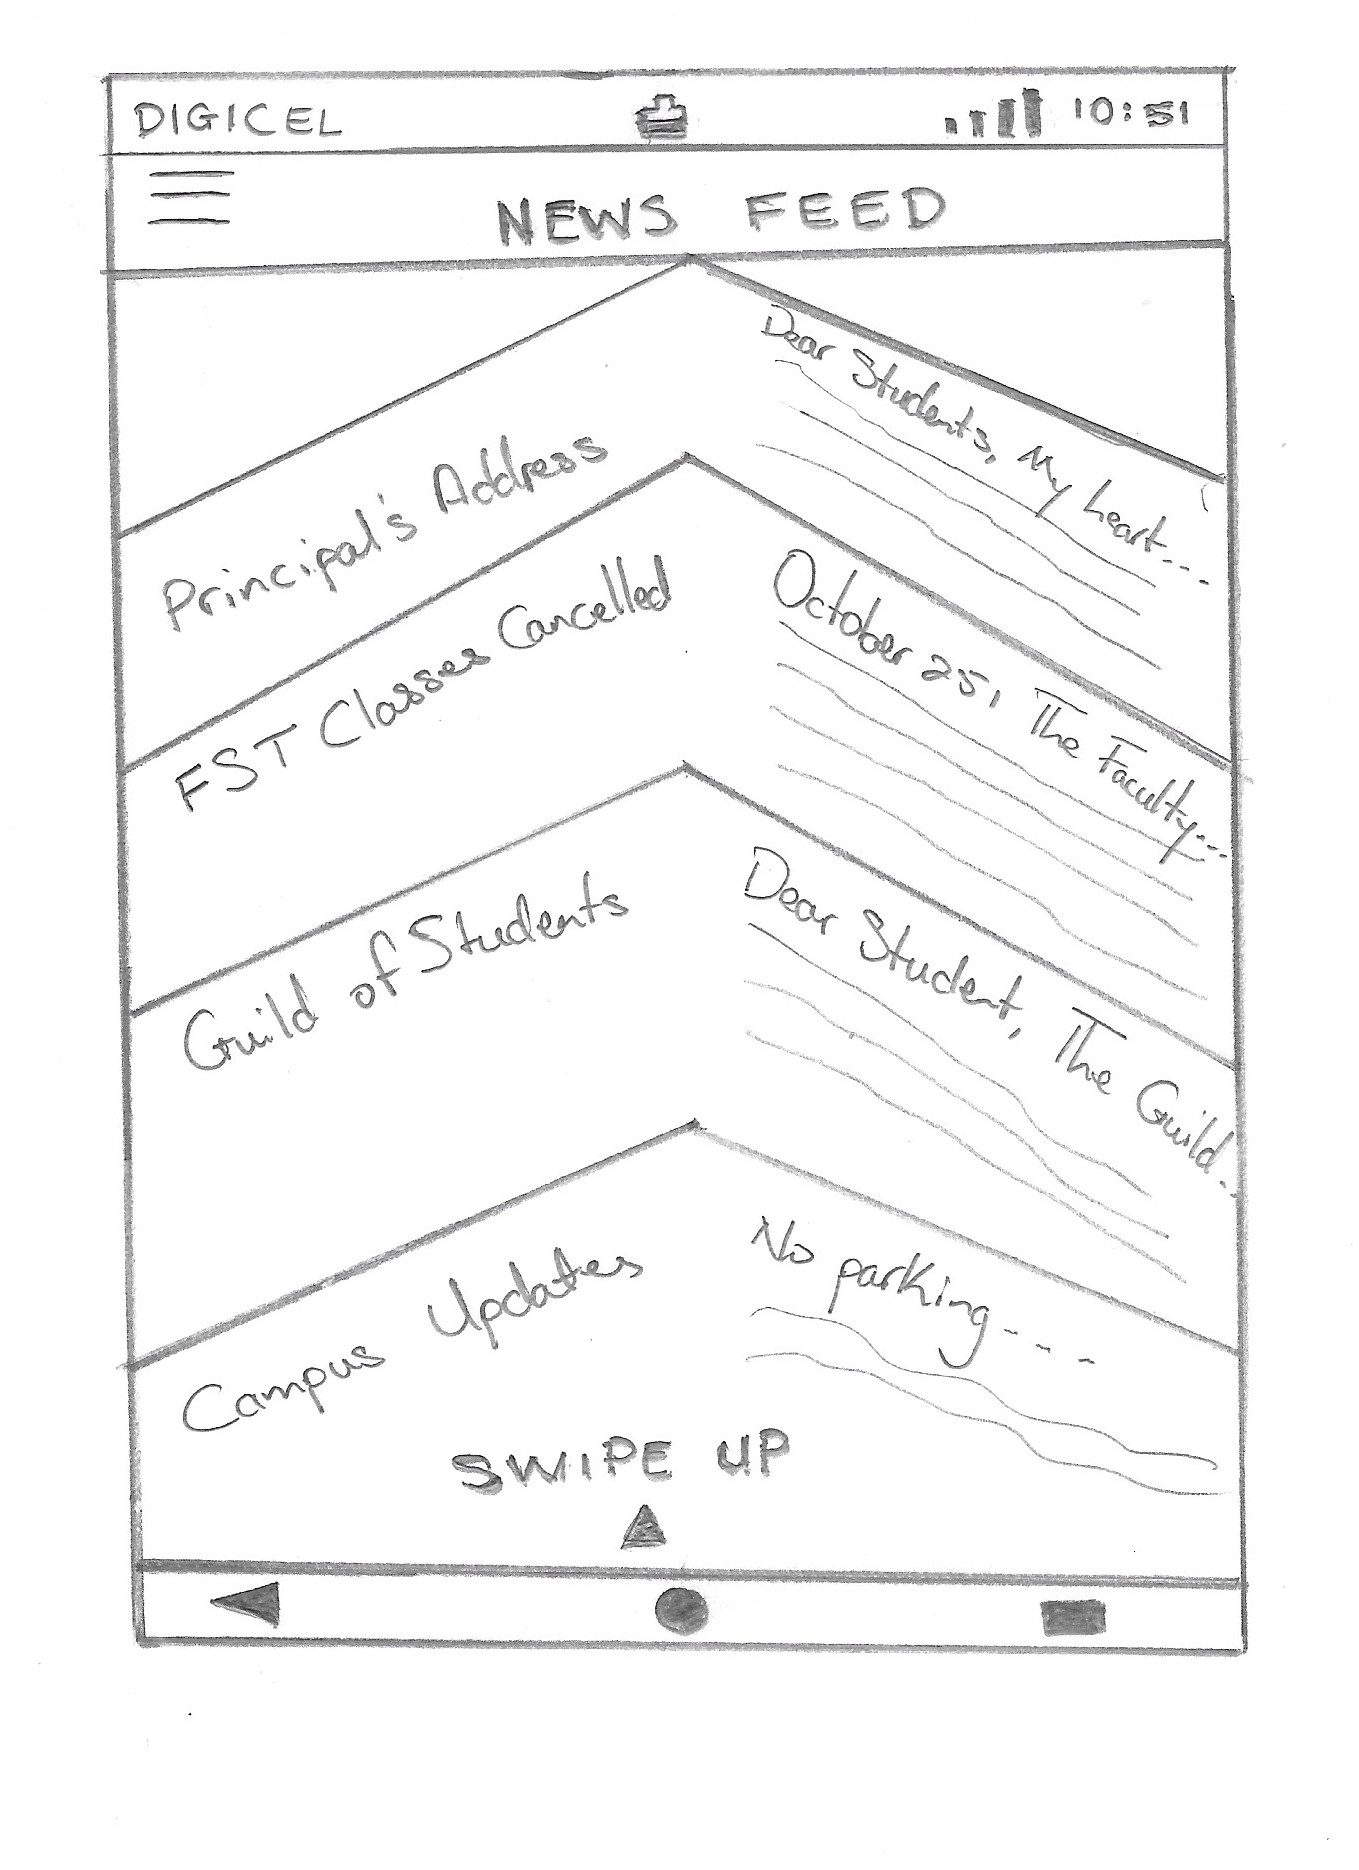 DIGICEL 10:51
NEWS FEED
Principal's Address
Dear Students, My heart...
FST Classes Cancelled
October 25, The Faculty...
Guild of Students
Dear Student, The Guild..
Campus Updates
No parking...
SWIPE UP